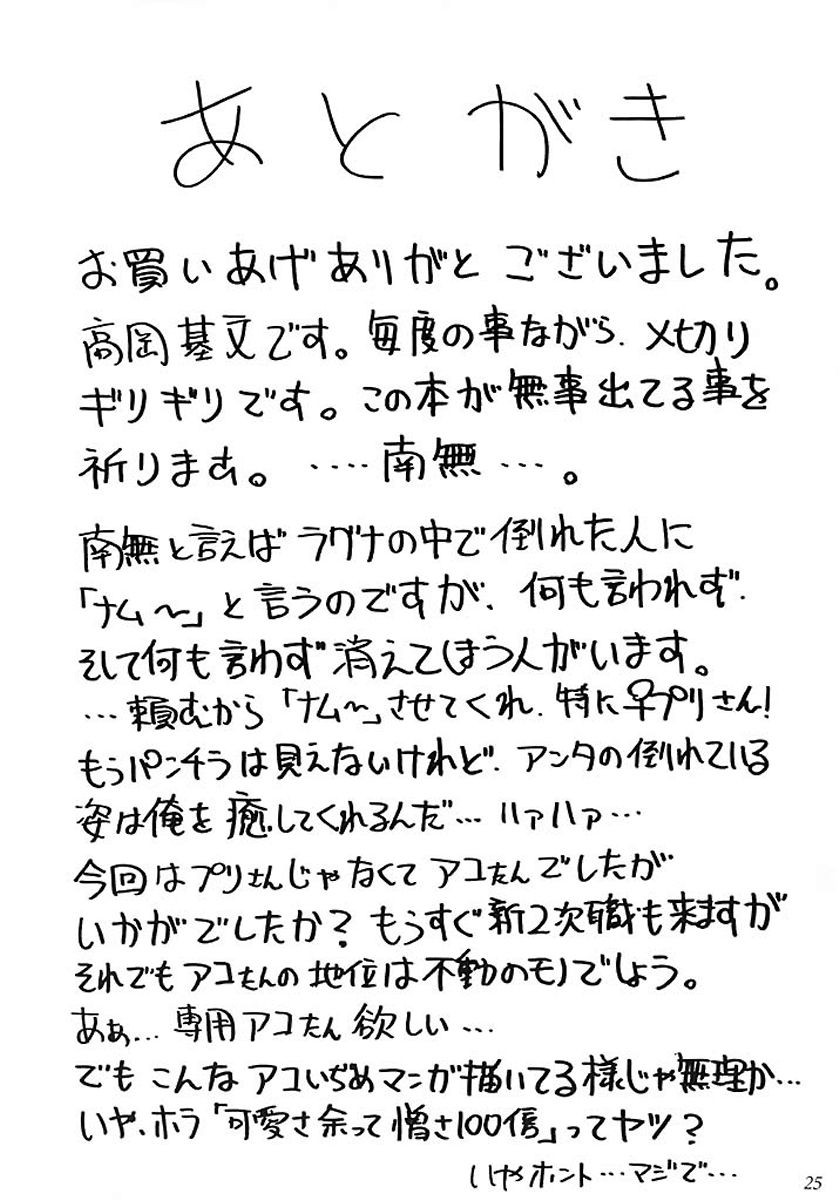 あとがき
お買いあげありがとございました。
高岡基文です。毎度の事ながら、〆切り
ギリギリです。この本が無事出てる事を
祈ります。‥‥南無…。
南無と言えばラグナの中で倒れた人に
「ナム〜」と言うのですが、何も言われず、
そして何も言わず消えてしまう人がいます。
…頼むから「ナム〜」させてくれ、特に♀プリさん!
もうパンチラは見えないけれど、アンタの倒れている
姿は俺を癒してくれるんだ…ハァハァ…
今回はプリさんじゃなくてアコたんでしたが
いかがでしたか?もうすぐ新2次職も来ますが
それでもアコたんの地位は不動のモノでしょう。
あぁ…専用アコたん欲しい…
でもこんなアコいぢめマンガ描いてる様じゃ無理か…
いや、ホラ「可愛さ余って憎さ100倍」ってヤツ?
いやホント…マジで…
25